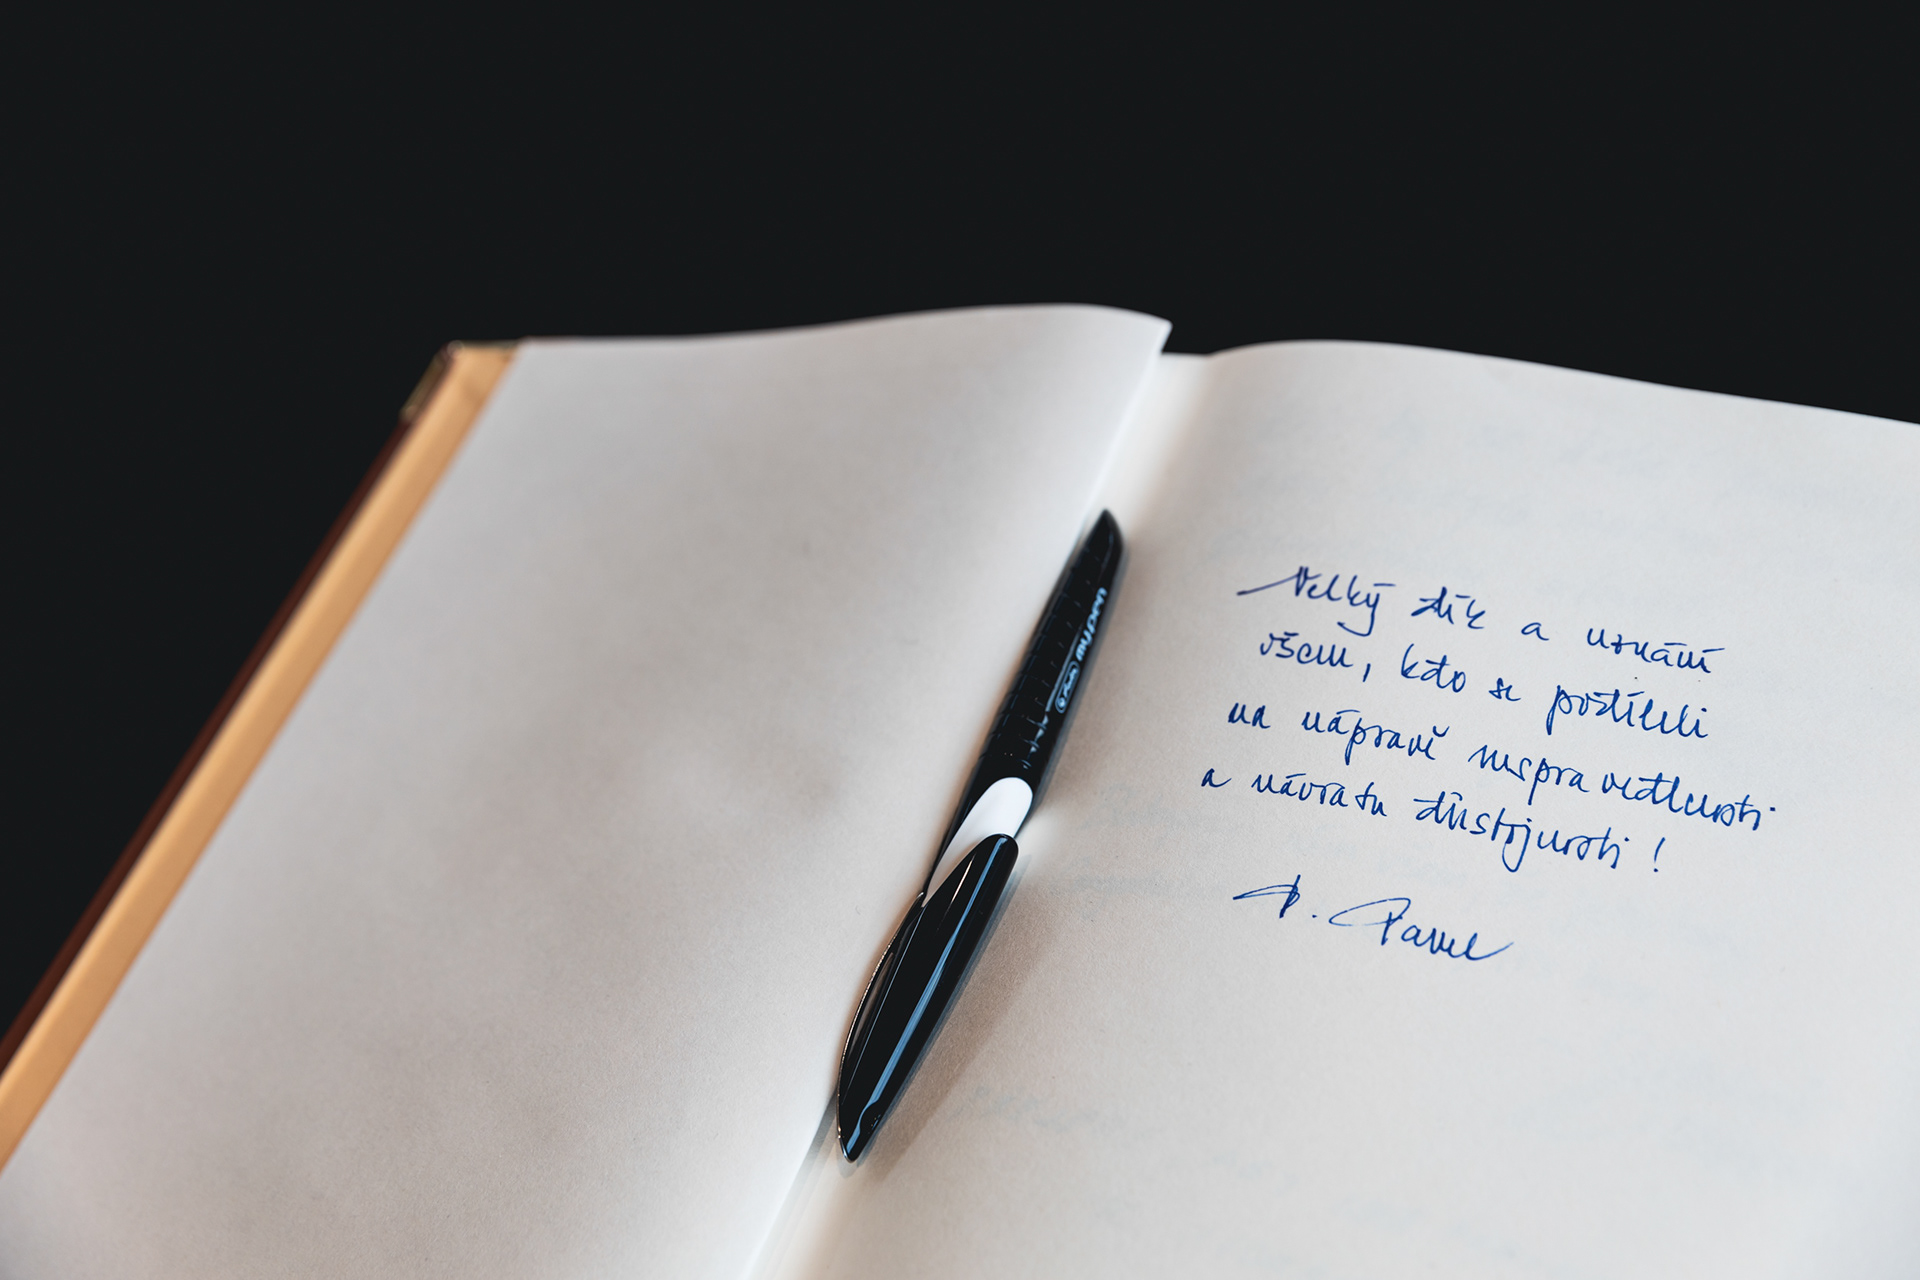 Velký dík a uznání
všem, kdo se podíleli
na nápravě nespravedlnosti
a návratu důstojnosti!
P. Pavel
my.pen